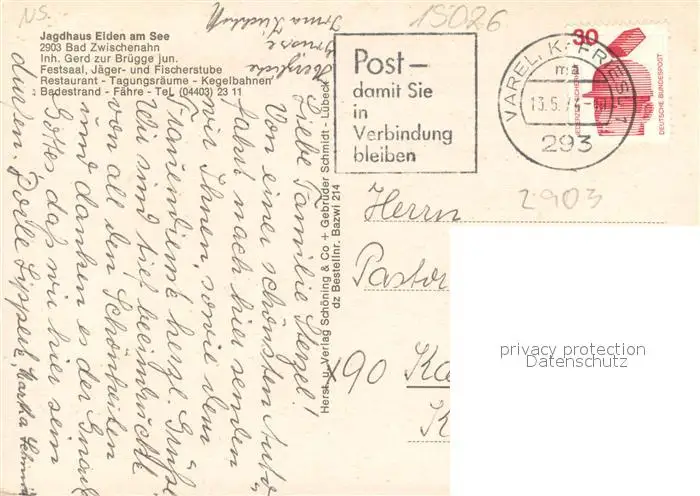 NS.
15026
Jagdhaus Eiden am See
2903 Bad Zwischenahn
Inh. Gerd zur Brügge jun.
Festsaal, Jäger- und Fischerstube
Restaurant - Tagungsräume - Kegelbahnen
Badestrand - Fähre - Tel. (04403) 23 11
Liebe Familie Stenzel!
Von einer schönsten Auto-
fahrt nach hier senden
wir Ihnen, sowie dem
Frauendienst herzl. Grüße
Wir sind tief beeindruckt
von all den Schönheiten
und danken es der Gnade
Gottes das wir hier sein
durfen. Dorle Lippert, Martha Schmidt
Herzliche
Grüsse
Irma
Herst. u. Verlag Schöning & Co + Gebrüder Schmidt - Lübeck
dz Bestellnr. Bazwi 214
Post–
damit Sie
in
Verbindung
bleiben
VAREL, K. FRIESL. 1
ma
13.5.
293
30
DEUTSCHE BUNDESPOST
2903
Herrn
Pastor
privacy protection
Datenschutz